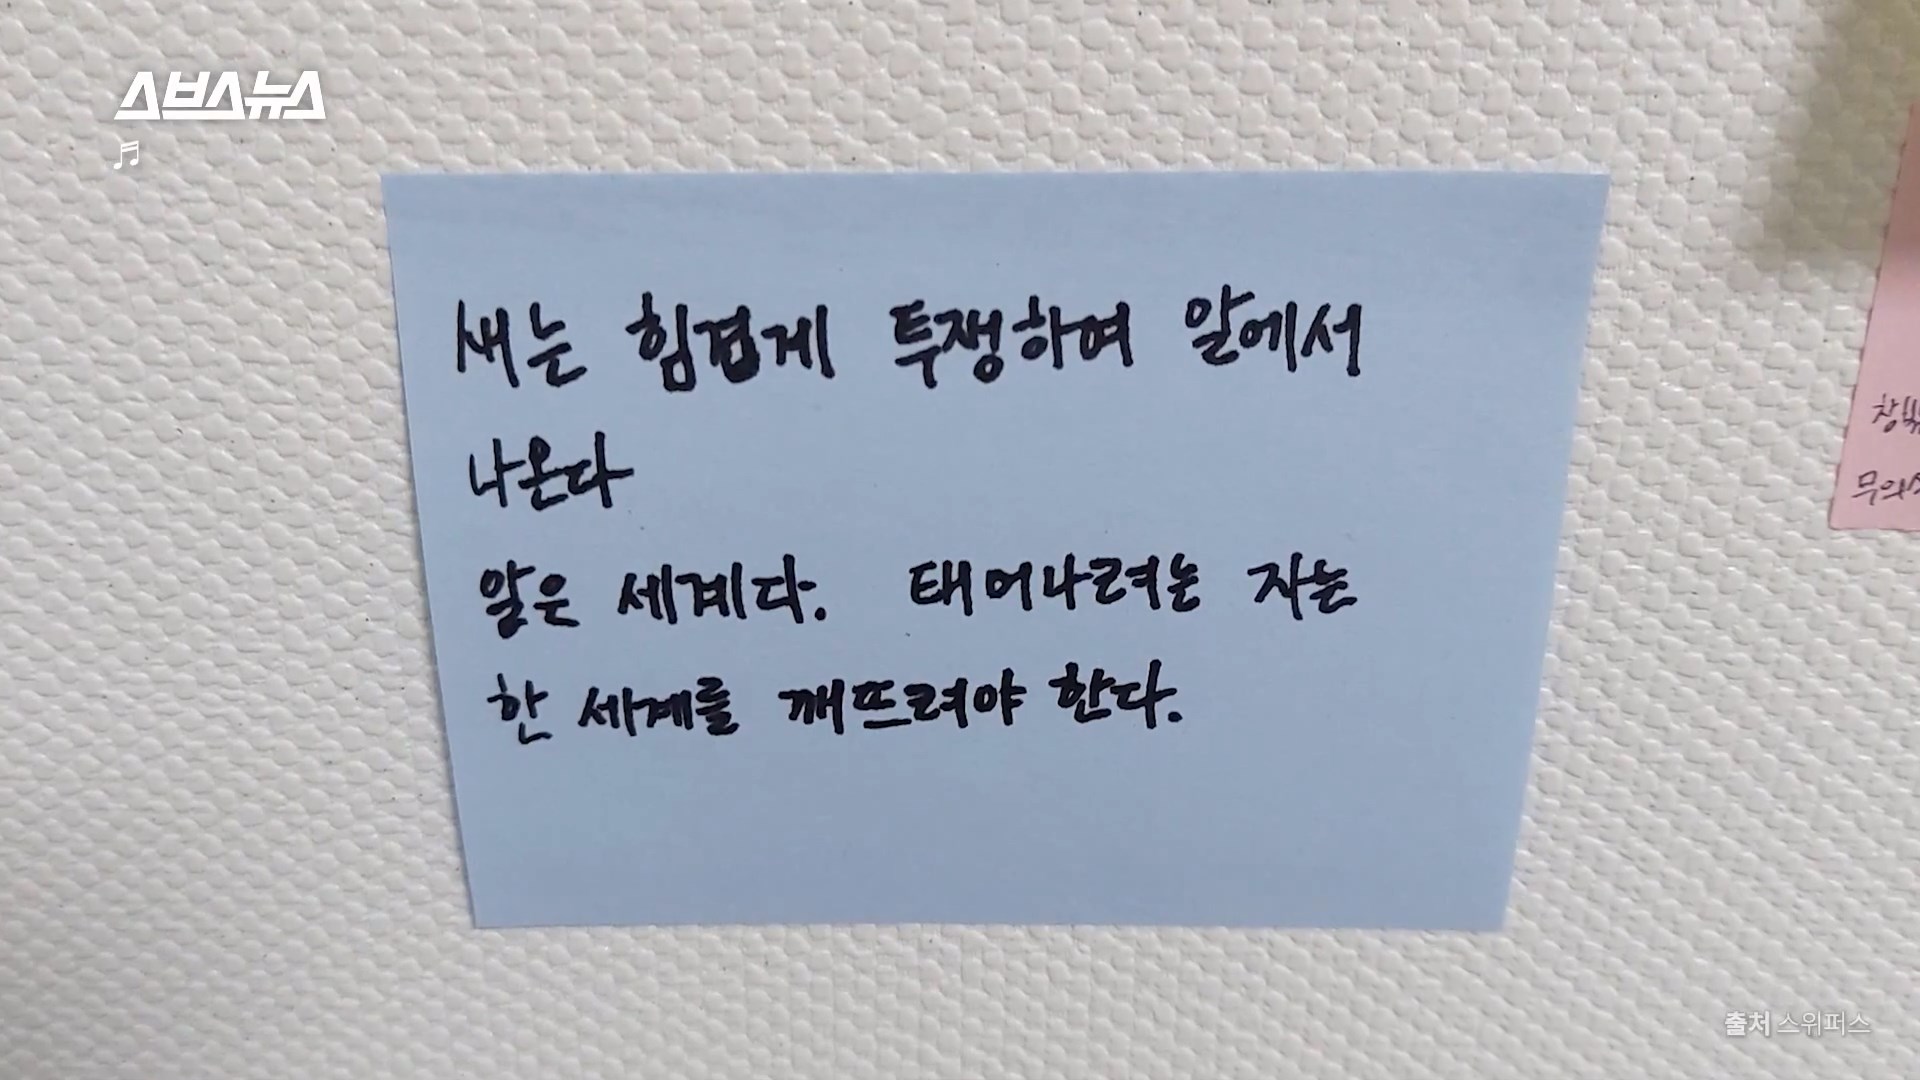 스브스뉴스
♬
새는 힘겹게 투쟁하여 알에서
나온다
알은 세계다. 태어나려는 자는
한 세계를 깨뜨려야 한다.
무의
출처 스위퍼스